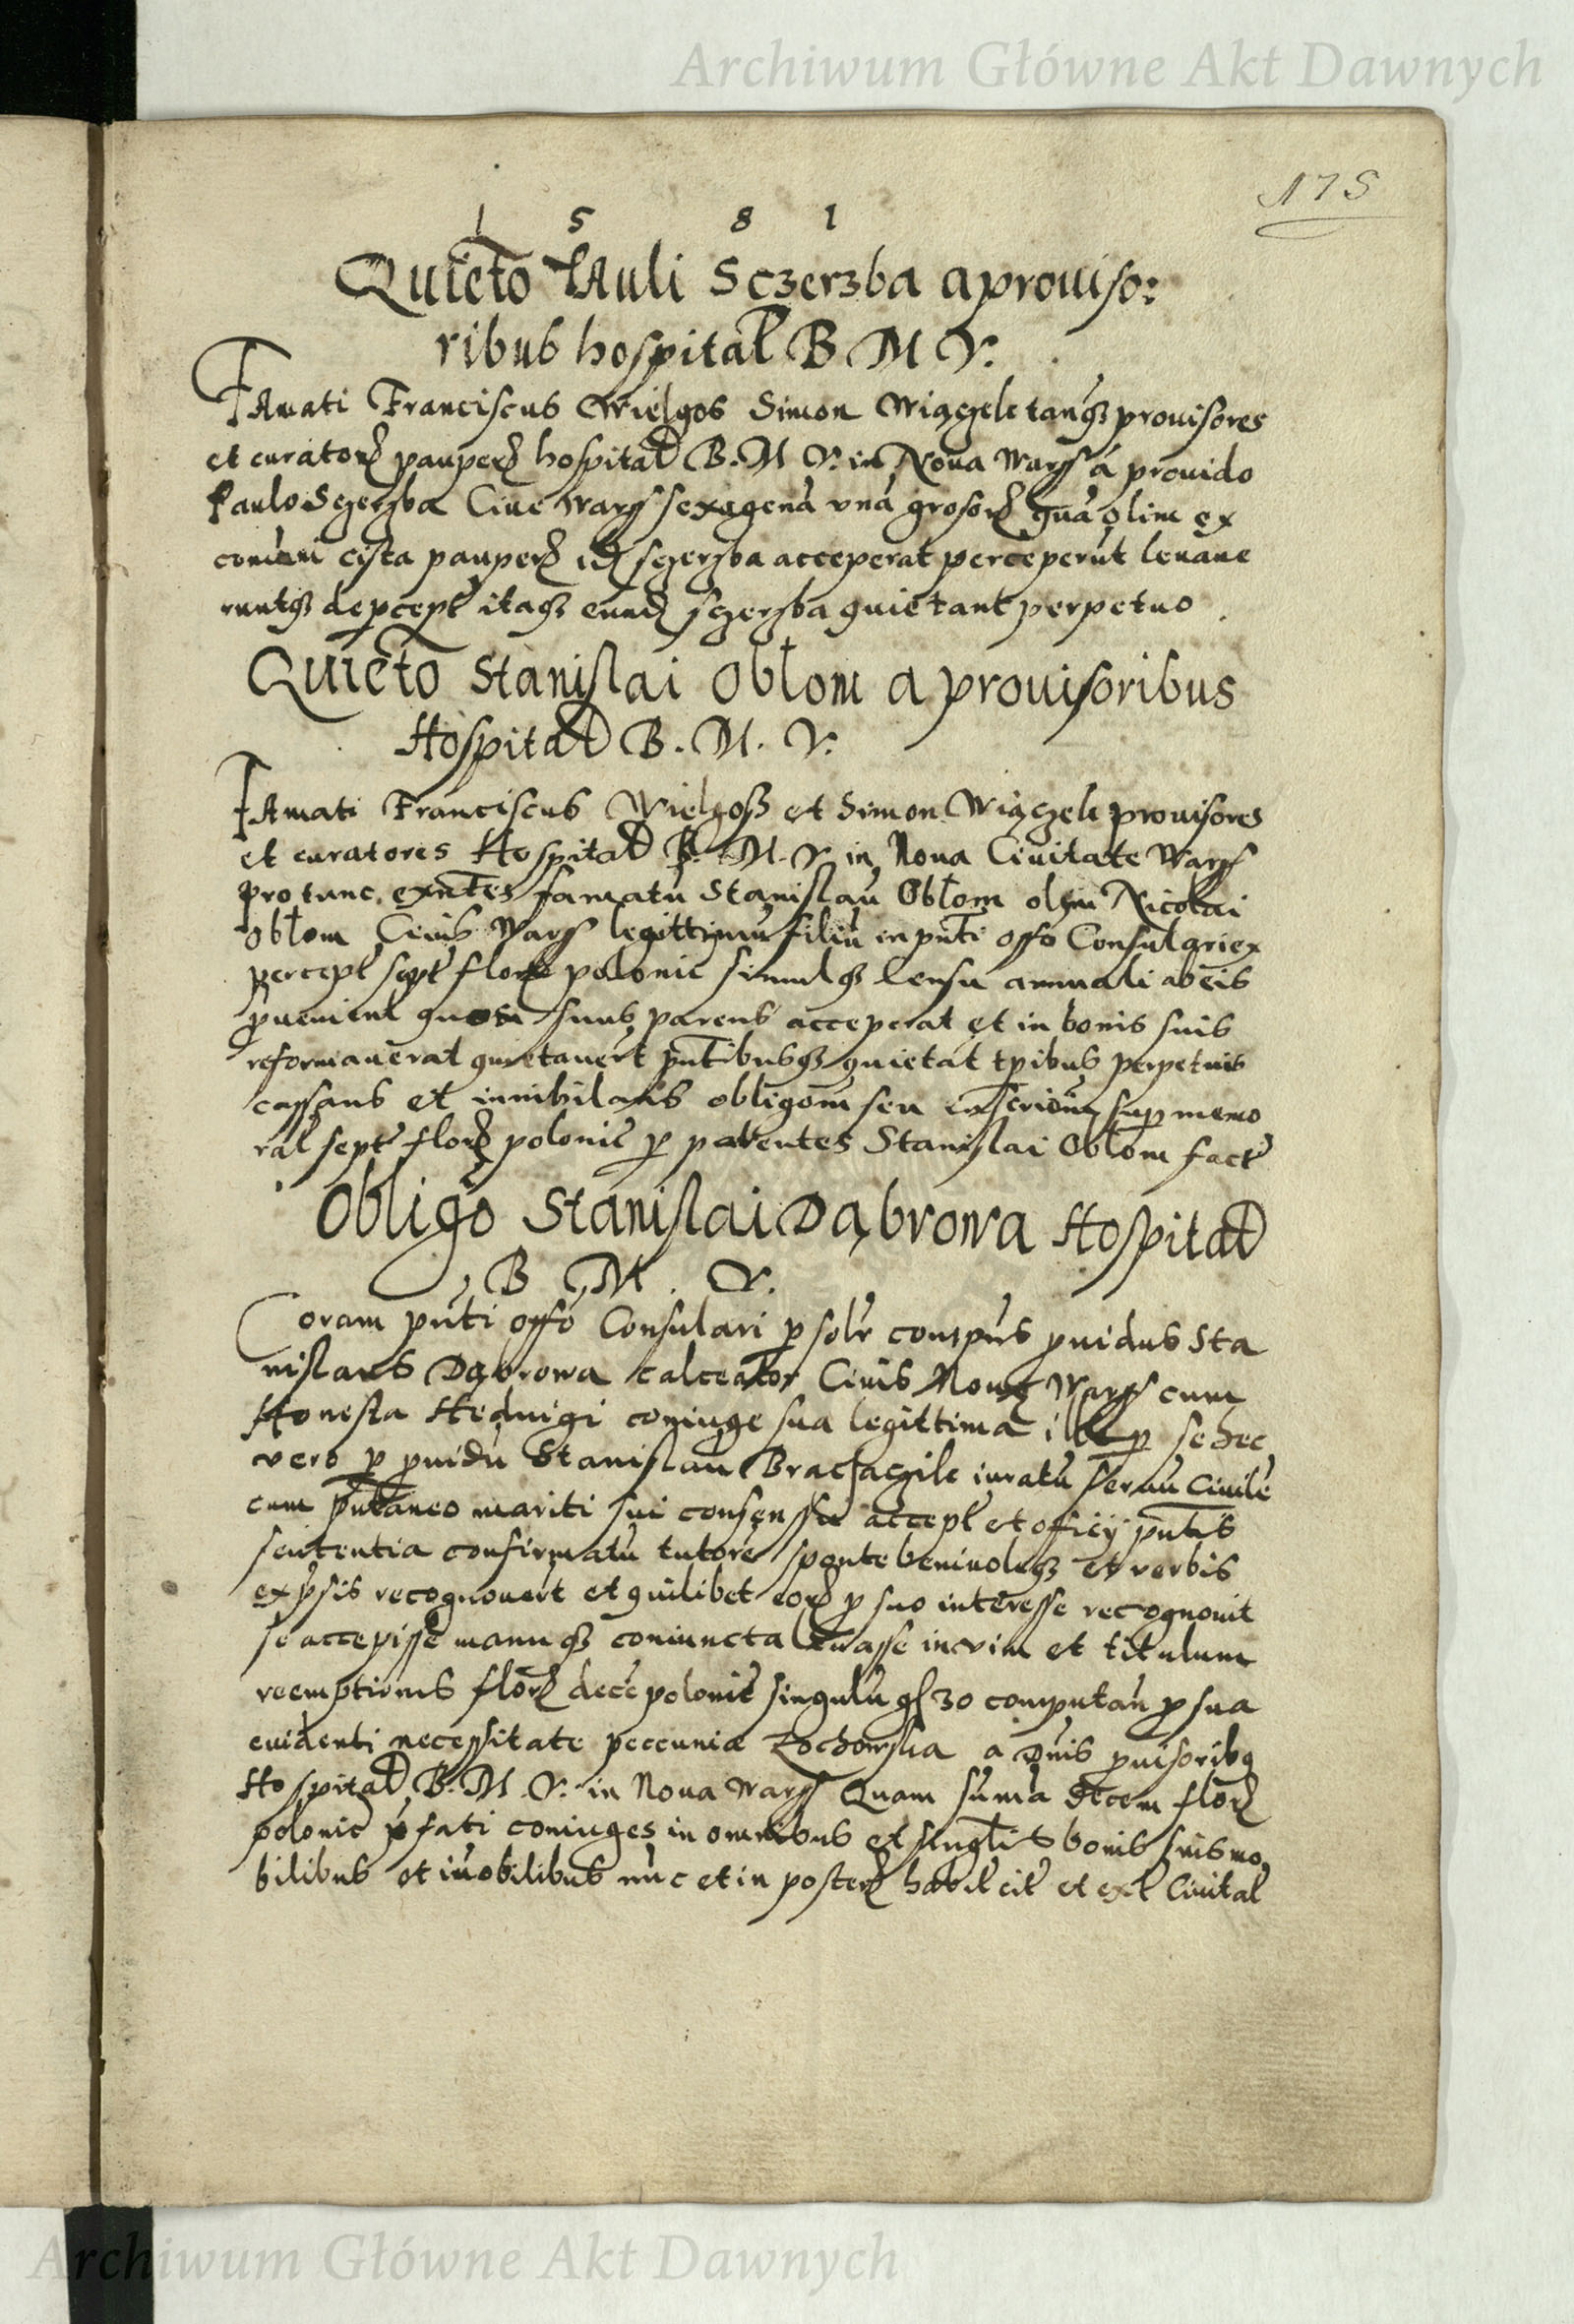 Archiwum Główne Akt Dawnych
175
1 5 8 1
Quieto Pauli Sczerzba a prouiso:
ribus hospital B M V.
Famati Franciscus Wielgos Simon Wiączele tanqz prouisores
et curator pauper hospital B. M V. in Noua Wars a prouido
Paulo Sczerzba Ciue Wars sexagena vna grosor qua olim ex
comuni cista pauper id sczerzba acceperat perceperut leuaue
runtqz de pcept itaqz eund sczerzba quietant perpetuo.
Quieto Stanislai Oblom a prouisoribus
Hospital B. M. V.
Famati Franciscus Wielgosz et Simon Wiączele prouisores
et curatores Hospital B. M. V. in Noua Ciuitate Wars
pro tunc exntes famatu Stanislau Oblom olim Nicolai
Oblom Ciuis Wars legittimu filiu in pnti offo Consulari ex
percept sept flor polonic simulqz Censu annuali ab eis
puenient quos suus parens acceperat et in bonis suis
reformauerat quietauert pntibusqz quietat tpibus perpetuis
cassans et innihilans obligom seu inscriom sup memo
rat sept flor polonic p parentes Stanislai Oblom fact
Obligo Stanislai Dąbrowa Hospital
B M. V.
Coram pnti offo Consulari psolr compns puidus Sta
nislaus Dąbrowa calceator Ciuis Noue Wars cum
Honesta Heduigi coniuge sua legittima ille p se hec
vero p puidu Stanislau iuratu seruu Ciuile
cum pntaneo mariti sui consensu accept et officij pntis
sententia confirmatu tutore sponte beniuoleqz et verbis
expsis recognouert et quilibet eor p suo interesse recognouit
se accepisse manuqz coniuncta leuasse in vim et titulum
reemptionis flor dece polonic singulu gs 30 computan p sua
euidenti necessitate peccunia Zochowska a Dnis puisoribq
Hospital B. M. V. in Noua Wars Quam suma decem flor
polonic pfati coniuges in omnibus et singlis bonis suis mo
bilibus et imobilibus nuc et in poster habit cit et ext Ciuitat
Archiwum Główne Akt Dawnych